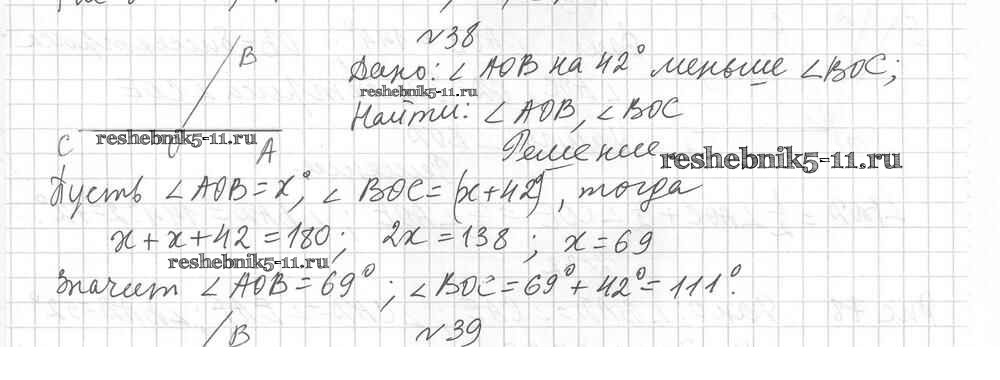 №38
B
Дано: ∠ AOB на 42° меньше ∠BOC;
reshebnik5-11.ru
Найти: ∠AOB, ∠BOC
C O A
reshebnik5-11.ru
Решение
reshebnik5-11.ru
Пусть ∠AOB = x°, ∠ BOC = (x+42)°, тогда
x + x + 42 = 180; 2x = 138; x = 69
reshebnik5-11.ru
Значит ∠AOB = 69°; ∠BOC = 69° + 42° = 111°.
B
№39